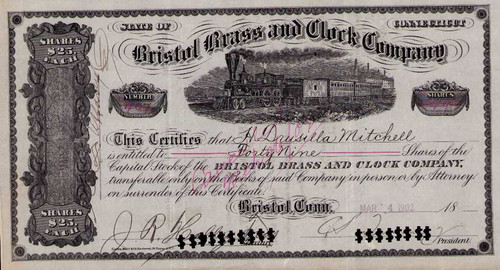 STATE OF CONNECTICUT
Bristol Brass and Clock Company
SHARES
$25
EACH
NUMBER
SHARES
This Certifies that H. Drusilla Mitchell
is entitled to Forty Nine Shares of the
Capital Stock of the BRISTOL BRASS AND CLOCK COMPANY,
transferable only on the Books of said Company in person or by Attorney
on surrender of this Certificate.
SHARES
$25
EACH
Bristol, Conn. MAR 4 18
J. R.
President.